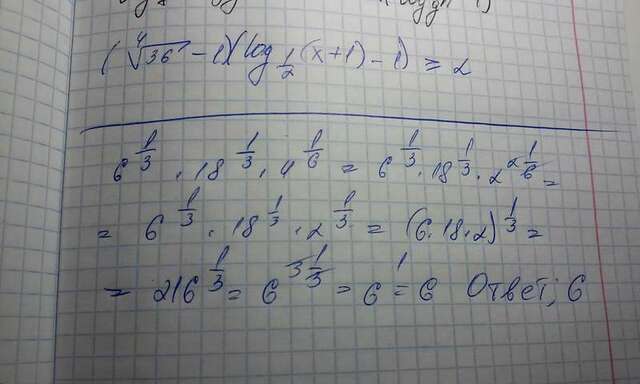 (⁴√36 - 1)(log_{1/2}(x+1) - 1) ≥ 2
6^{1/3} · 18^{1/3} · 4^{1/6} = 6^{1/3} · 18^{1/3} · 2^{2·1/6} =
= 6^{1/3} · 18^{1/3} · 2^{1/3} = (6·18·2)^{1/3} =
= 216^{1/3} = 6^{3·1/3} = 6^1 = 6 Ответ; 6